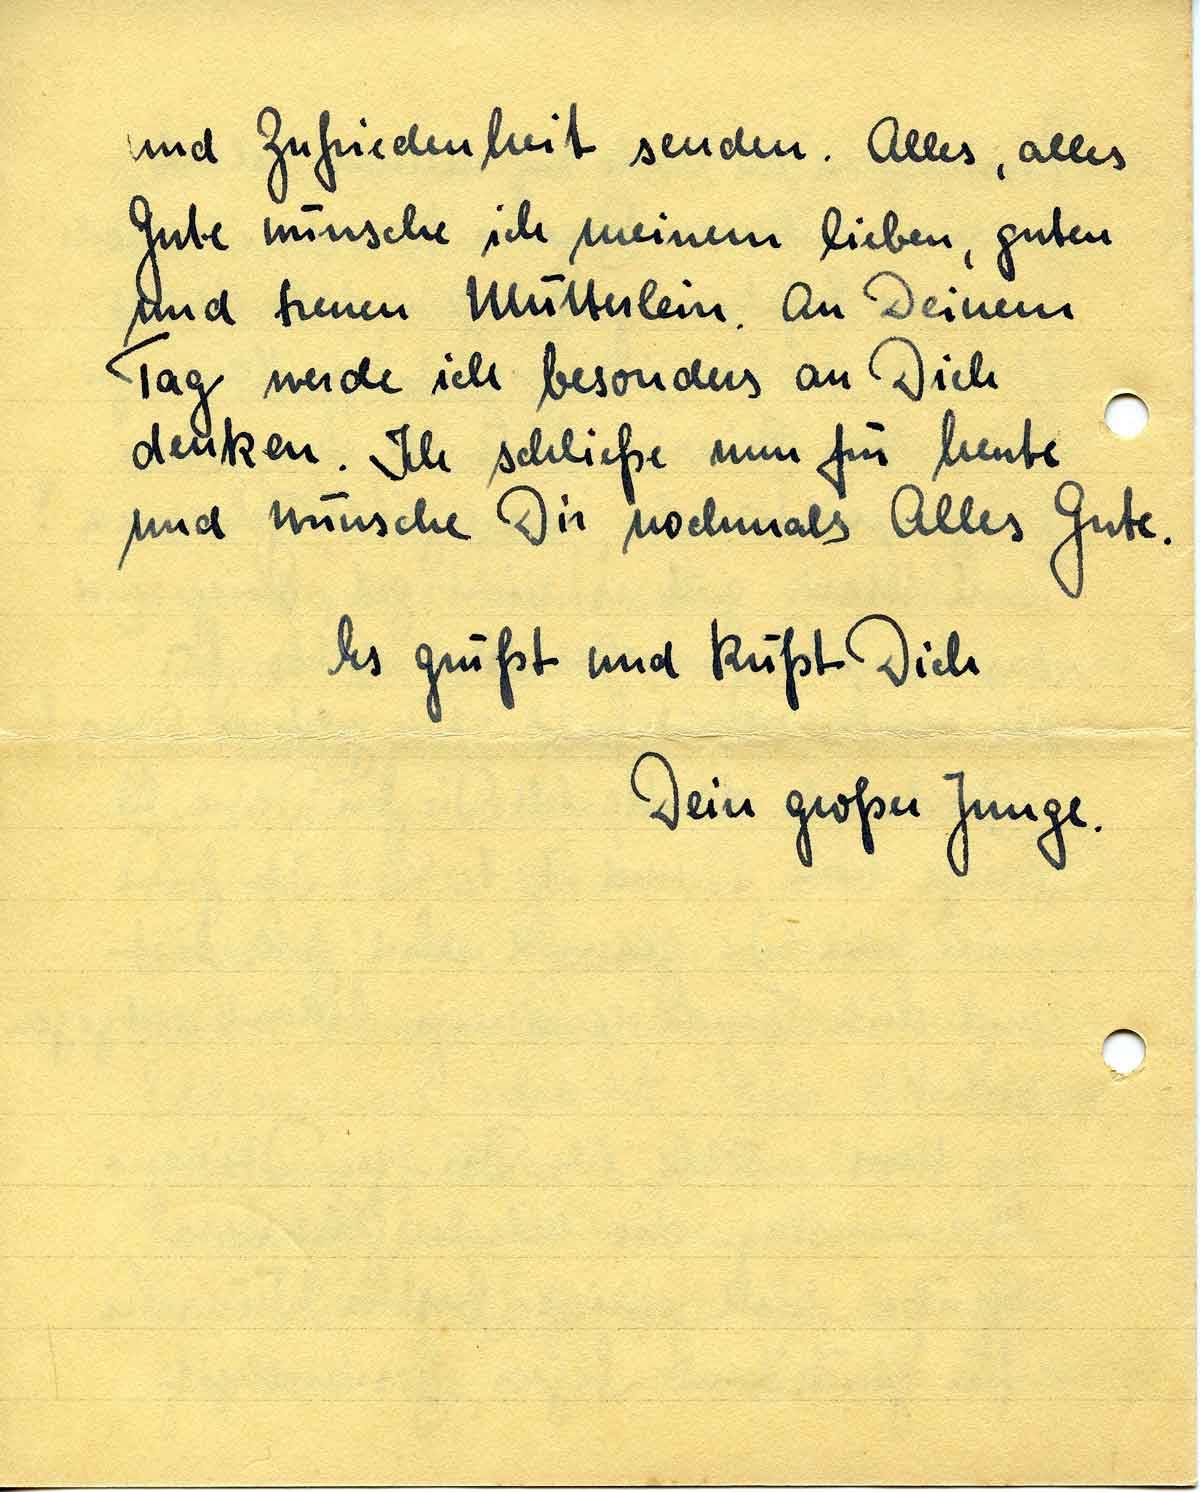 und Zufriedenheit senden. Alles, alles
Gute wünsche ich meinem lieben, guten
und treuen Mütterlein. An Deinem
Tag werde ich besonders an Dich
denken. Ich schließe nun für heute
und wünsche Dir nochmals Alles Gute.
Es grüßt und küßt Dich
Dein großer Junge.